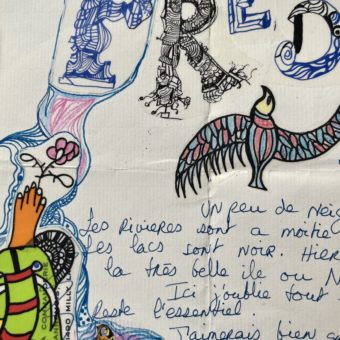 FRED
Un peu de Neig
Les RIVIERES SONT a moitie
Les lacs sont NOIR. Hier
la très belle ile ou N
Ici j'oublie tout
Reste l'essentiel.
J'aimerais bien